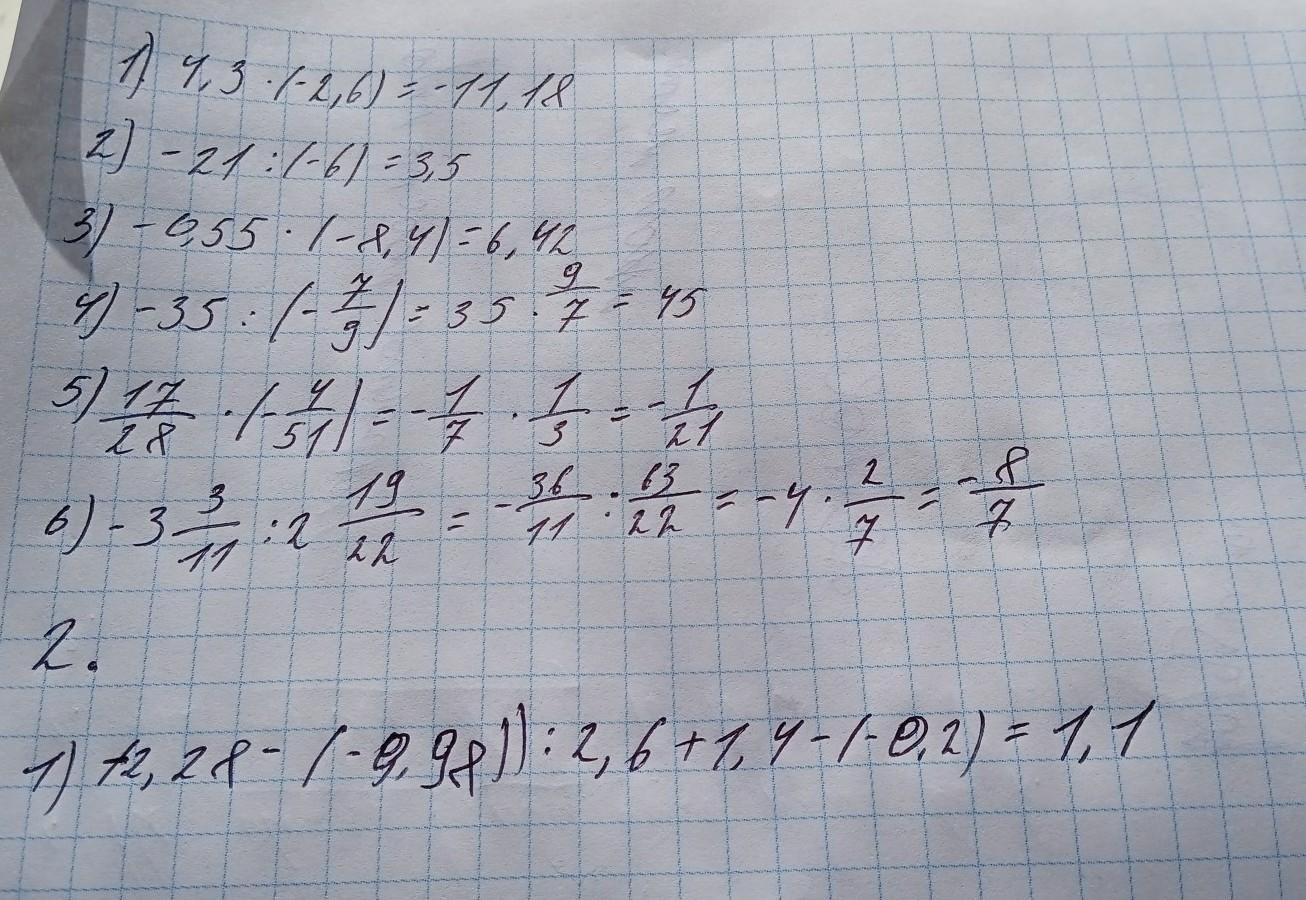 1) 4,3 · (-2,6) = -11,18
2) -21 : (-6) = 3,5
3) -0,55 · (-8,4) = 6,42
4) -35 : (-7/9) = 35 · 9/7 = 45
5) 17/28 · (-4/51) = -1/7 · 1/3 = -1/21
6) -3 3/11 : 2 19/22 = -36/11 : 63/22 = -4 · 2/7 = -8/7
2.
1) -2,28 - (-0,98)) : 2,6 + 1,4 - (-0,2) = 1,1